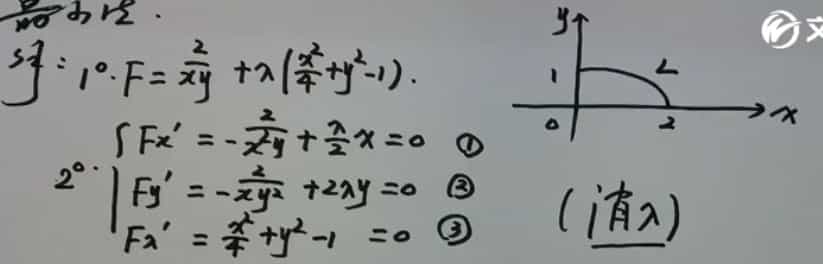 解: 1°. F = 2/(xy) + λ(x²/4 + y² - 1).
2°. { Fx' = -2/(x²y) + λ/2 x = 0 ①
Fy' = -2/(xy²) + 2λy = 0 ②
Fλ' = x²/4 + y² - 1 = 0 ③
(消λ)
y
1
L
0
2
x
文